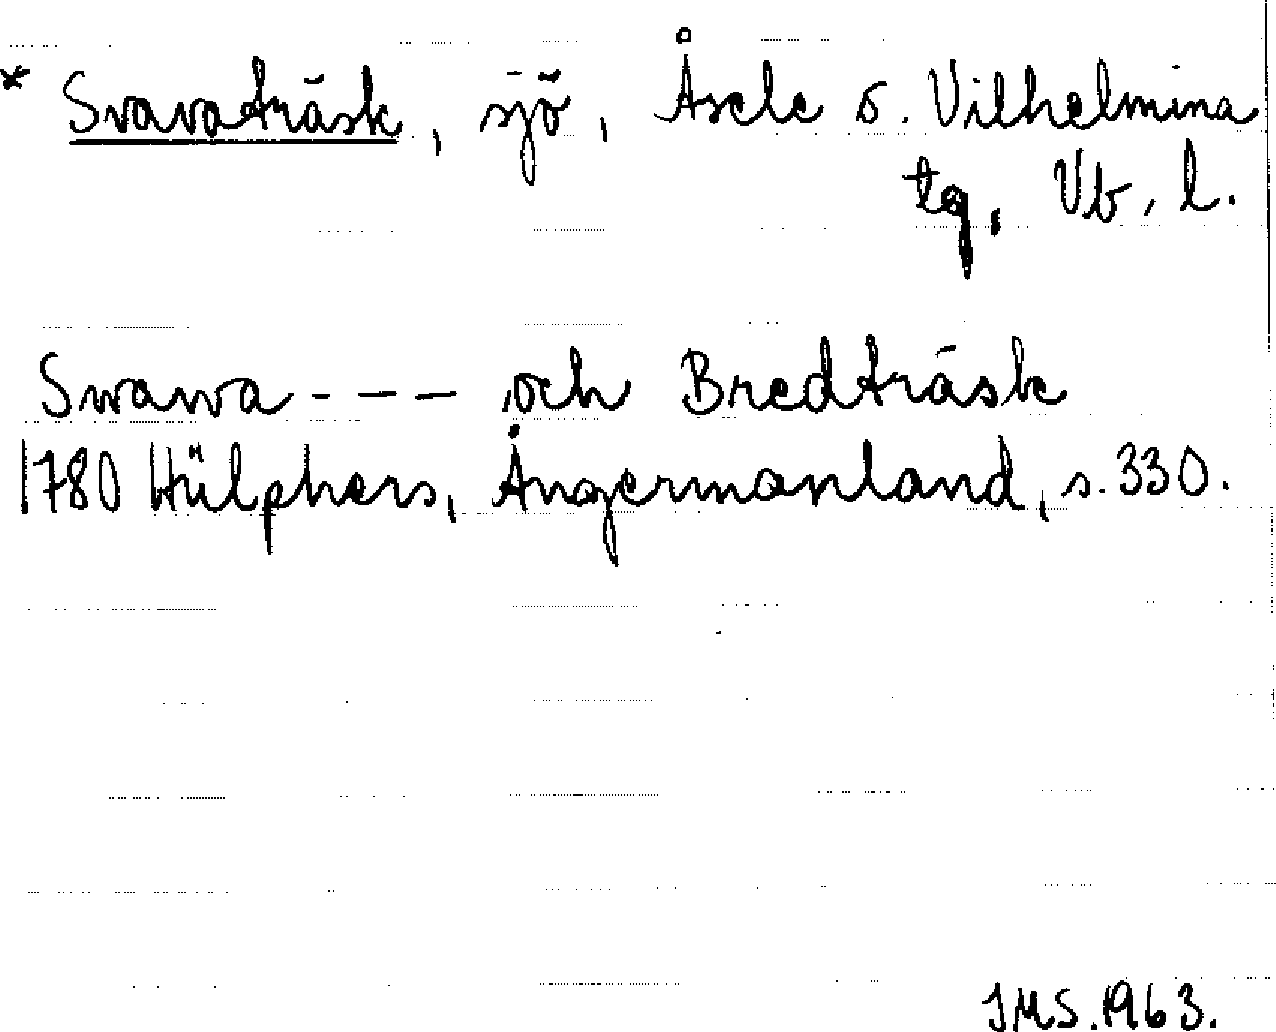 * Svavaträsk, sjö, Åsele o. Vilhelmina
tg, Vb, l.
Swawa - - - och Bredträsk
1780 Hülphers, Ångermanland, s. 330.
IMS. 1963.